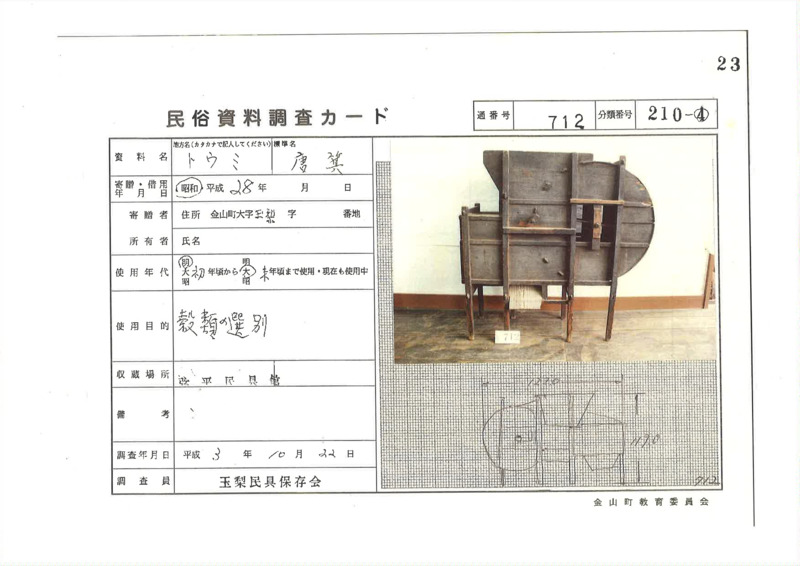 23
民俗資料調査カード
通番号 712 分類番号 210-④
地方名(カタカナで記入してください) 標準名
資料名 トウミ 唐箕
寄贈・借用年月日 昭和 平成 28年 月 日
寄贈者 住所 金山町大字玉梨字 番地
所有者 氏名
使用年代 明大昭 初年頃から 明大昭 末年頃まで使用・現在も使用中
使用目的 穀類の選別
収蔵場所 平民具館
備考
調査年月日 平成 3年 10月 22日
調査員 玉梨民具保存会
712
127.0
117.0
712
金山町教育委員会